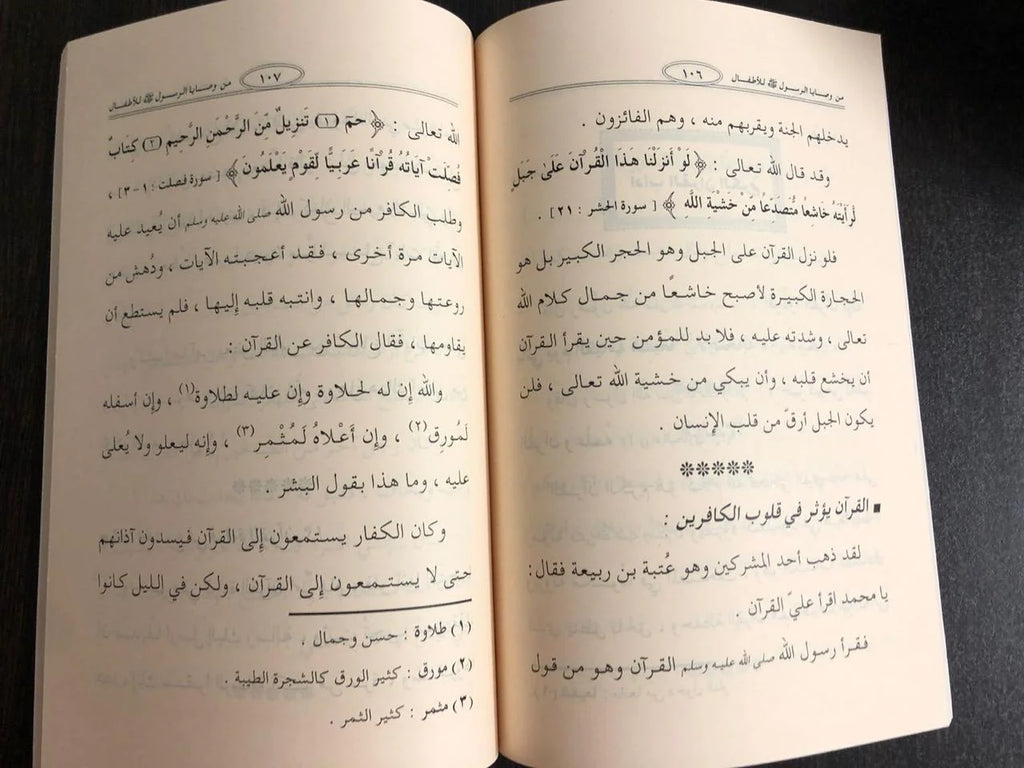 من وصايا الرسول ﷺ للأطفال
١٠٦
يدخلهم الجنة ويقربهم منه ، وهم الفائزون .
وقد قال الله تعالى : ﴿ لَوْ أَنزَلْنَا هَذَا الْقُرْآنَ عَلَىٰ جَبَلٍ
لَّرَأَيْتَهُ خَاشِعًا مُّتَصَدِّعًا مِّنْ خَشْيَةِ اللَّهِ ﴾ [ سورة الحشر : ٢١ ] .
فلو نزل القرآن على الجبل وهو الحجر الكبير بل هو
الحجارة الكبيرة لأصبح خاشعًا من جمال كلام الله
تعالى ، وشدته عليه ، فلا بد للمؤمن حين يقرأ القرآن
أن يخشع قلبه ، وأن يبكي من خشية الله تعالى ، فلن
يكون الجبل أرقّ من قلب الإنسان .
❊❊❊❊❊
▪ القرآن يؤثر في قلوب الكافرين :
لقد ذهب أحد المشركين وهو عُتبة بن ربيعة فقال :
يا محمد اقرأ عليّ القرآن .
فقرأ رسول الله صلى الله عليه وسلم القرآن وهو من قول
من وصايا الرسول ﷺ للأطفال
١٠٧
الله تعالى : ﴿ حمٓ (١) تَنزِيلٌ مِّنَ الرَّحْمَنِ الرَّحِيمِ (٢) كِتَابٌ
فُصِّلَتْ آيَاتُهُ قُرْآنًا عَرَبِيًّا لِّقَوْمٍ يَعْلَمُونَ ﴾ [ سورة فصلت : ١ - ٣ ] ،
وطلب الكافر من رسول الله صلى الله عليه وسلم أن يُعيد عليه
الآيات مرة أخرى ، فقد أعجبته الآيات ، ودُهش من
روعتها وجمالها ، وانتبه قلبه إليها ، فلم يستطع أن
يقاومها ، فقال الكافر عن القرآن :
والله إن له لحلاوة وإن عليه لطلاوة(١) ، وإن أسفله
لَمُورِق(٢) ، وإن أَعْلاهُ لَمُثْمِر(٣) ، وإنه ليعلو ولا يُعلى
عليه ، وما هذا بقول البشر .
وكان الكفار يستمعون إلى القرآن فيسدون آذانهم
حتى لا يستمعون إلى القرآن ، ولكن في الليل كانوا
(١) طلاوة : حسن وجمال .
(٢) مورق : كثير الورق كالشجرة الطيبة .
(٣) مثمر : كثير الثمر .